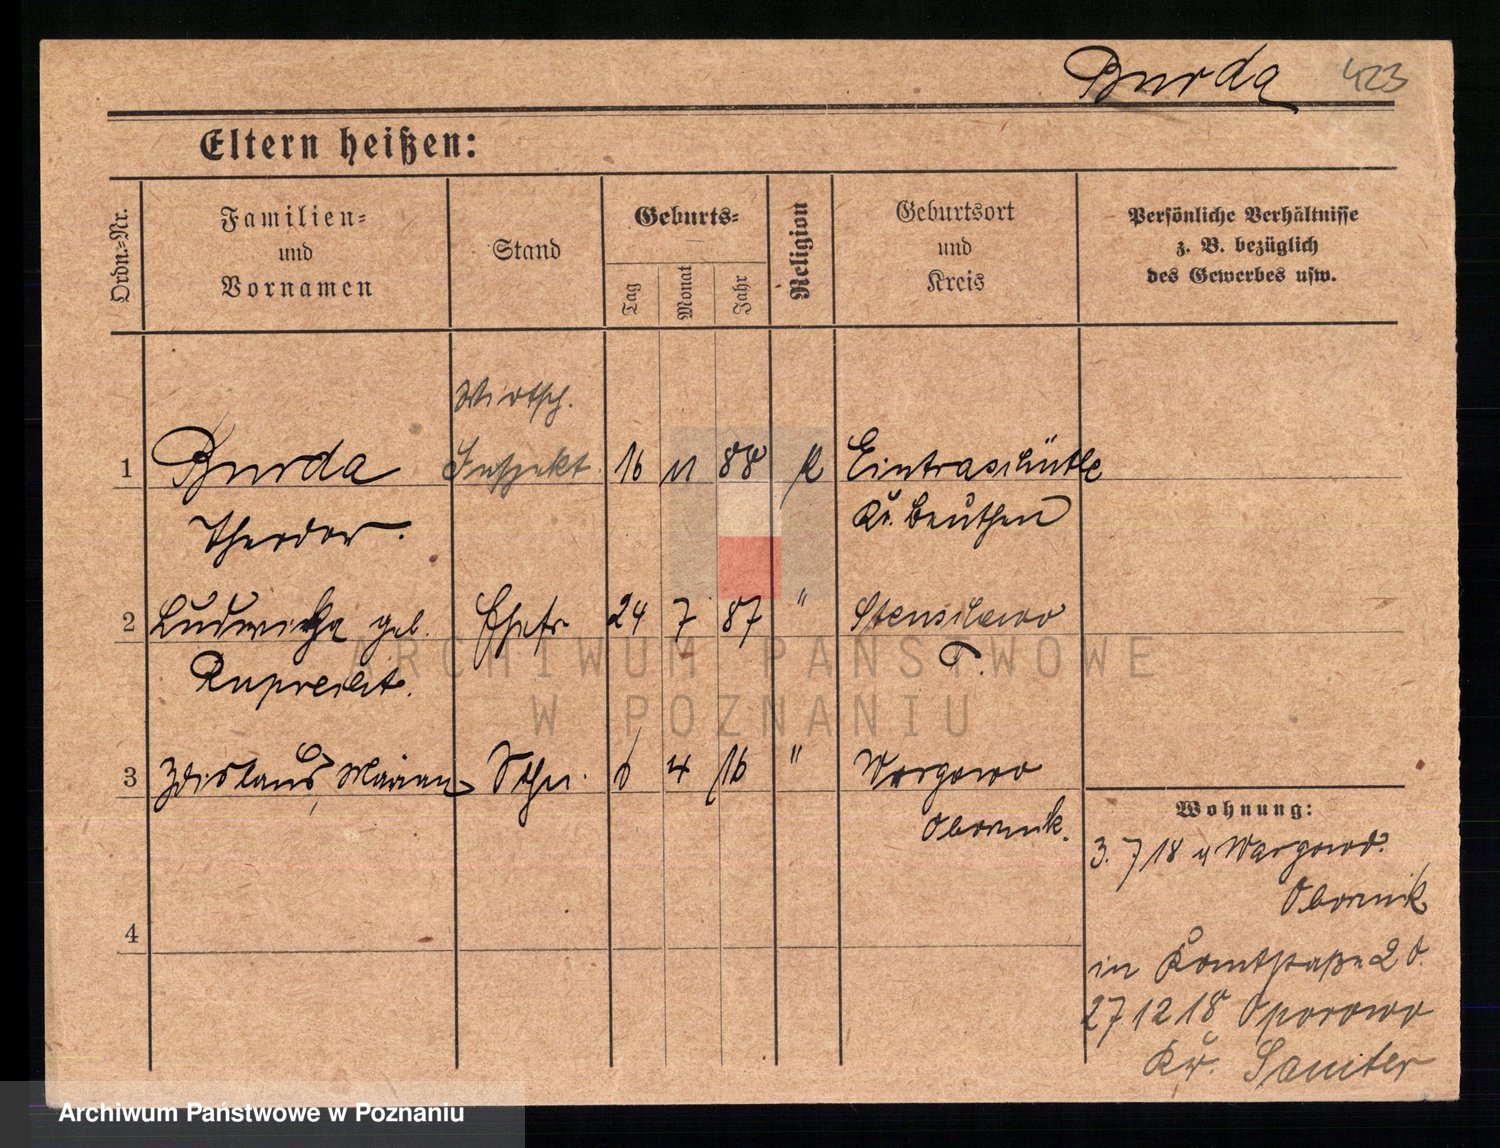 Burda 423
Eltern heißen:
Ordn.=Nr.
Familien=
und
Vornamen
Stand
Geburts=
Tag
Monat
Jahr
Religion
Geburtsort
und
Kreis
Persönliche Verhältnisse
z. B. bezüglich
des Gewerbes usw.
Wirtsch.
1 Burda Inspekt. 16 11 88 k Eintrachthütte
Theodor. Kr. Beuthen
2 Ludwicka geb. Ehefr. 24 7 87 "
Ruprecht.
3 Zdislaus, Marian Sohn. 6 4 16 " Wargowo
Obornik.
4
Wohnung:
3. 7 18 n Wargowo.
Obornik
in 20.
27 12 18 Oporowo
Kr. Samter
ARCHIWUM PAŃSTWOWE
W POZNANIU
Archiwum Państwowe w Poznaniu